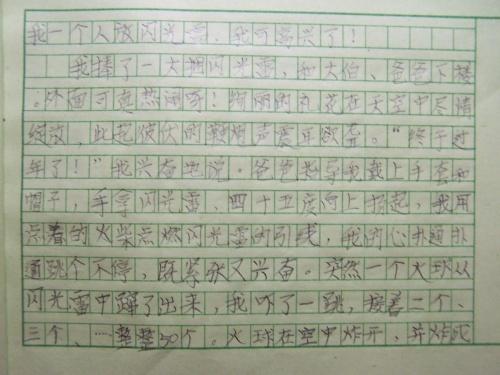 我一个人放闪光雷，我可高兴了！
我捧了一大捆闪光雷，和大伯、爸爸下楼
。外面可真热闹呀！绚丽的礼花在天空中尽情
绽放，此起彼伏的鞭炮声震耳欲聋。“终于过
年了！”我兴奋地说。爸爸指导我戴上手套和
帽子，手拿闪光雷，四十五度向上扬起，我用
点着的火柴点燃闪光雷的引线，我的心扑通扑
通跳个不停，既紧张又兴奋。突然一个火球从
闪光雷中蹿了出来，我吓了一跳，接着二个、
三个、……整整50个。火球在空中炸开，并炸成